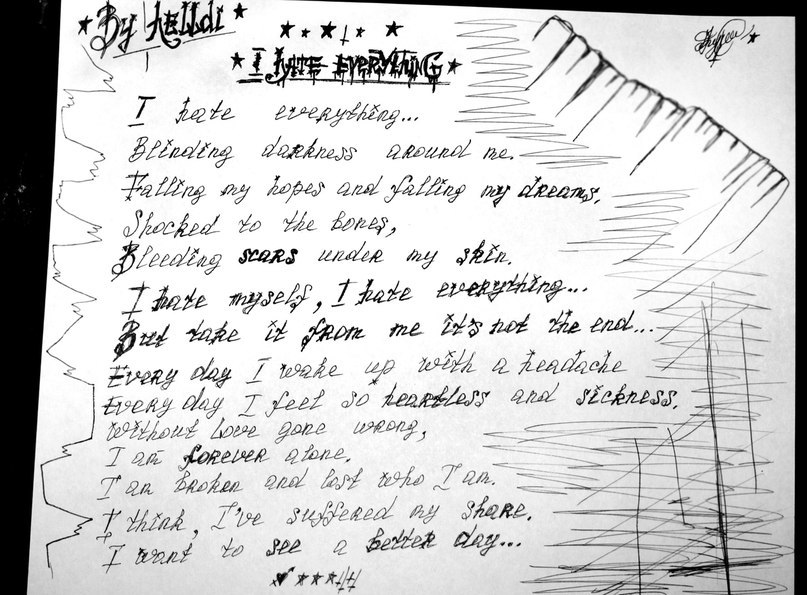 By Helldi
I hate everything
I hate everything...
Blinding darkness around me.
Falling my hopes and falling my dreams,
Shocked to the bones,
Bleeding scars under my skin.
I hate myself, I hate everything...
But take it from me it's not the end...
Every day I wake up with a headache
Every day I feel so heartless and sickness.
Without love gone wrong,
I am forever alone.
I am broken and lost who I am.
I think, I've suffered my share.
I want to see a better day...